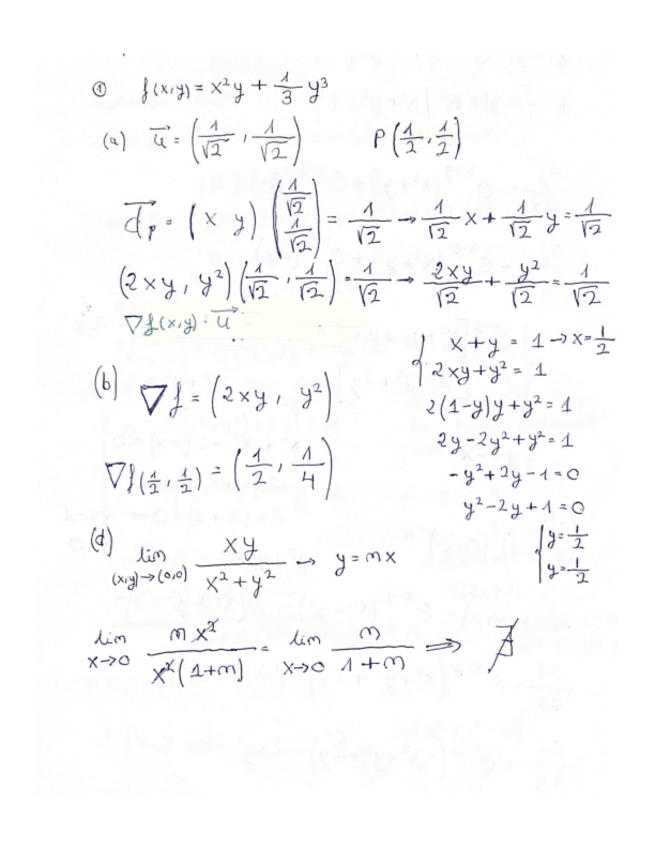 ① f(x,y) = x²y + 1/3 y³
(a) u⃗ = (1/√2, 1/√2) P(1/2, 1/2)
d⃗ₚ = (x y) (1/√2 1/√2) = 1/√2 → 1/√2 x + 1/√2 y = 1/√2
(2xy, y²) (1/√2, 1/√2) = 1/√2 → 2xy/√2 + y²/√2 = 1/√2
∇f(x,y) · u⃗
{ x + y = 1 → x = 1/2
2xy + y² = 1
2(1-y)y + y² = 1
2y - 2y² + y² = 1
- y² + 2y - 1 = 0
y² - 2y + 1 = 0
{ y = 1/2
y = 1/2
(b) ∇f = (2xy, y²)
∇f(1/2, 1/2) = (1/2, 1/4)
(d) lim (x,y)→(0,0) xy / x² + y² → y = mx
lim x→0 m x² / x²(1+m) = lim x→0 m / 1+m ⇒ ∄